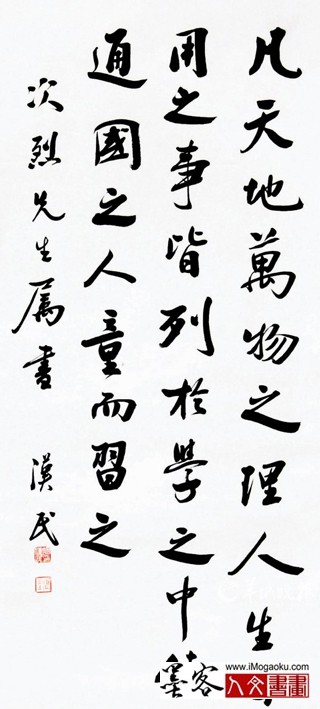 凡天地萬物之理人生
用之事皆列於學之中
通國之人童而習之
次烈先生属書 漢民
墨客
www.iMogaoku.com
人文書畫